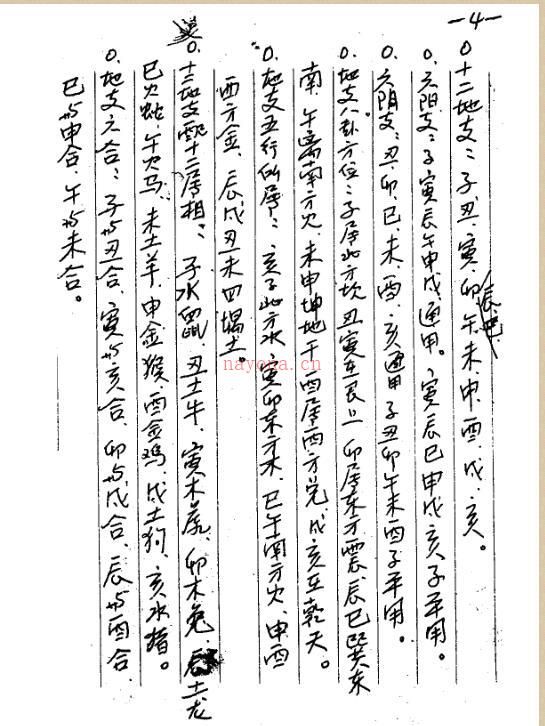 —4—
○十二地支：子、丑、寅、卯、辰、巳、午、未、申、酉、戌、亥。
○六阳支：子寅辰午申戌通用。寅辰巳申戌亥子平用。
○六阴支：丑、卯、巳、未、酉、亥通用子丑卯午未酉子平用。
○地支八卦方位：子居北方坎丑寅东艮上卯居东方震辰巳巽东
南、午离南方火、未申坤地于酉居西方兑、戌亥在乾天。
○地支五行所属：亥子北方水、寅卯东方木、巳午南方火、申酉
西方金、辰戌丑未四土。
○十二地支配十二属相：子水鼠、丑土牛、寅木虎、卯木兔、辰土龙
巳火蛇、午火马、未土羊、申金猴酉金鸡戌土狗、亥水猪。
○地支六合：子与丑合、寅与亥合、卯与戌合、辰与酉合
巳与申合、午与未合。
nayona.cn